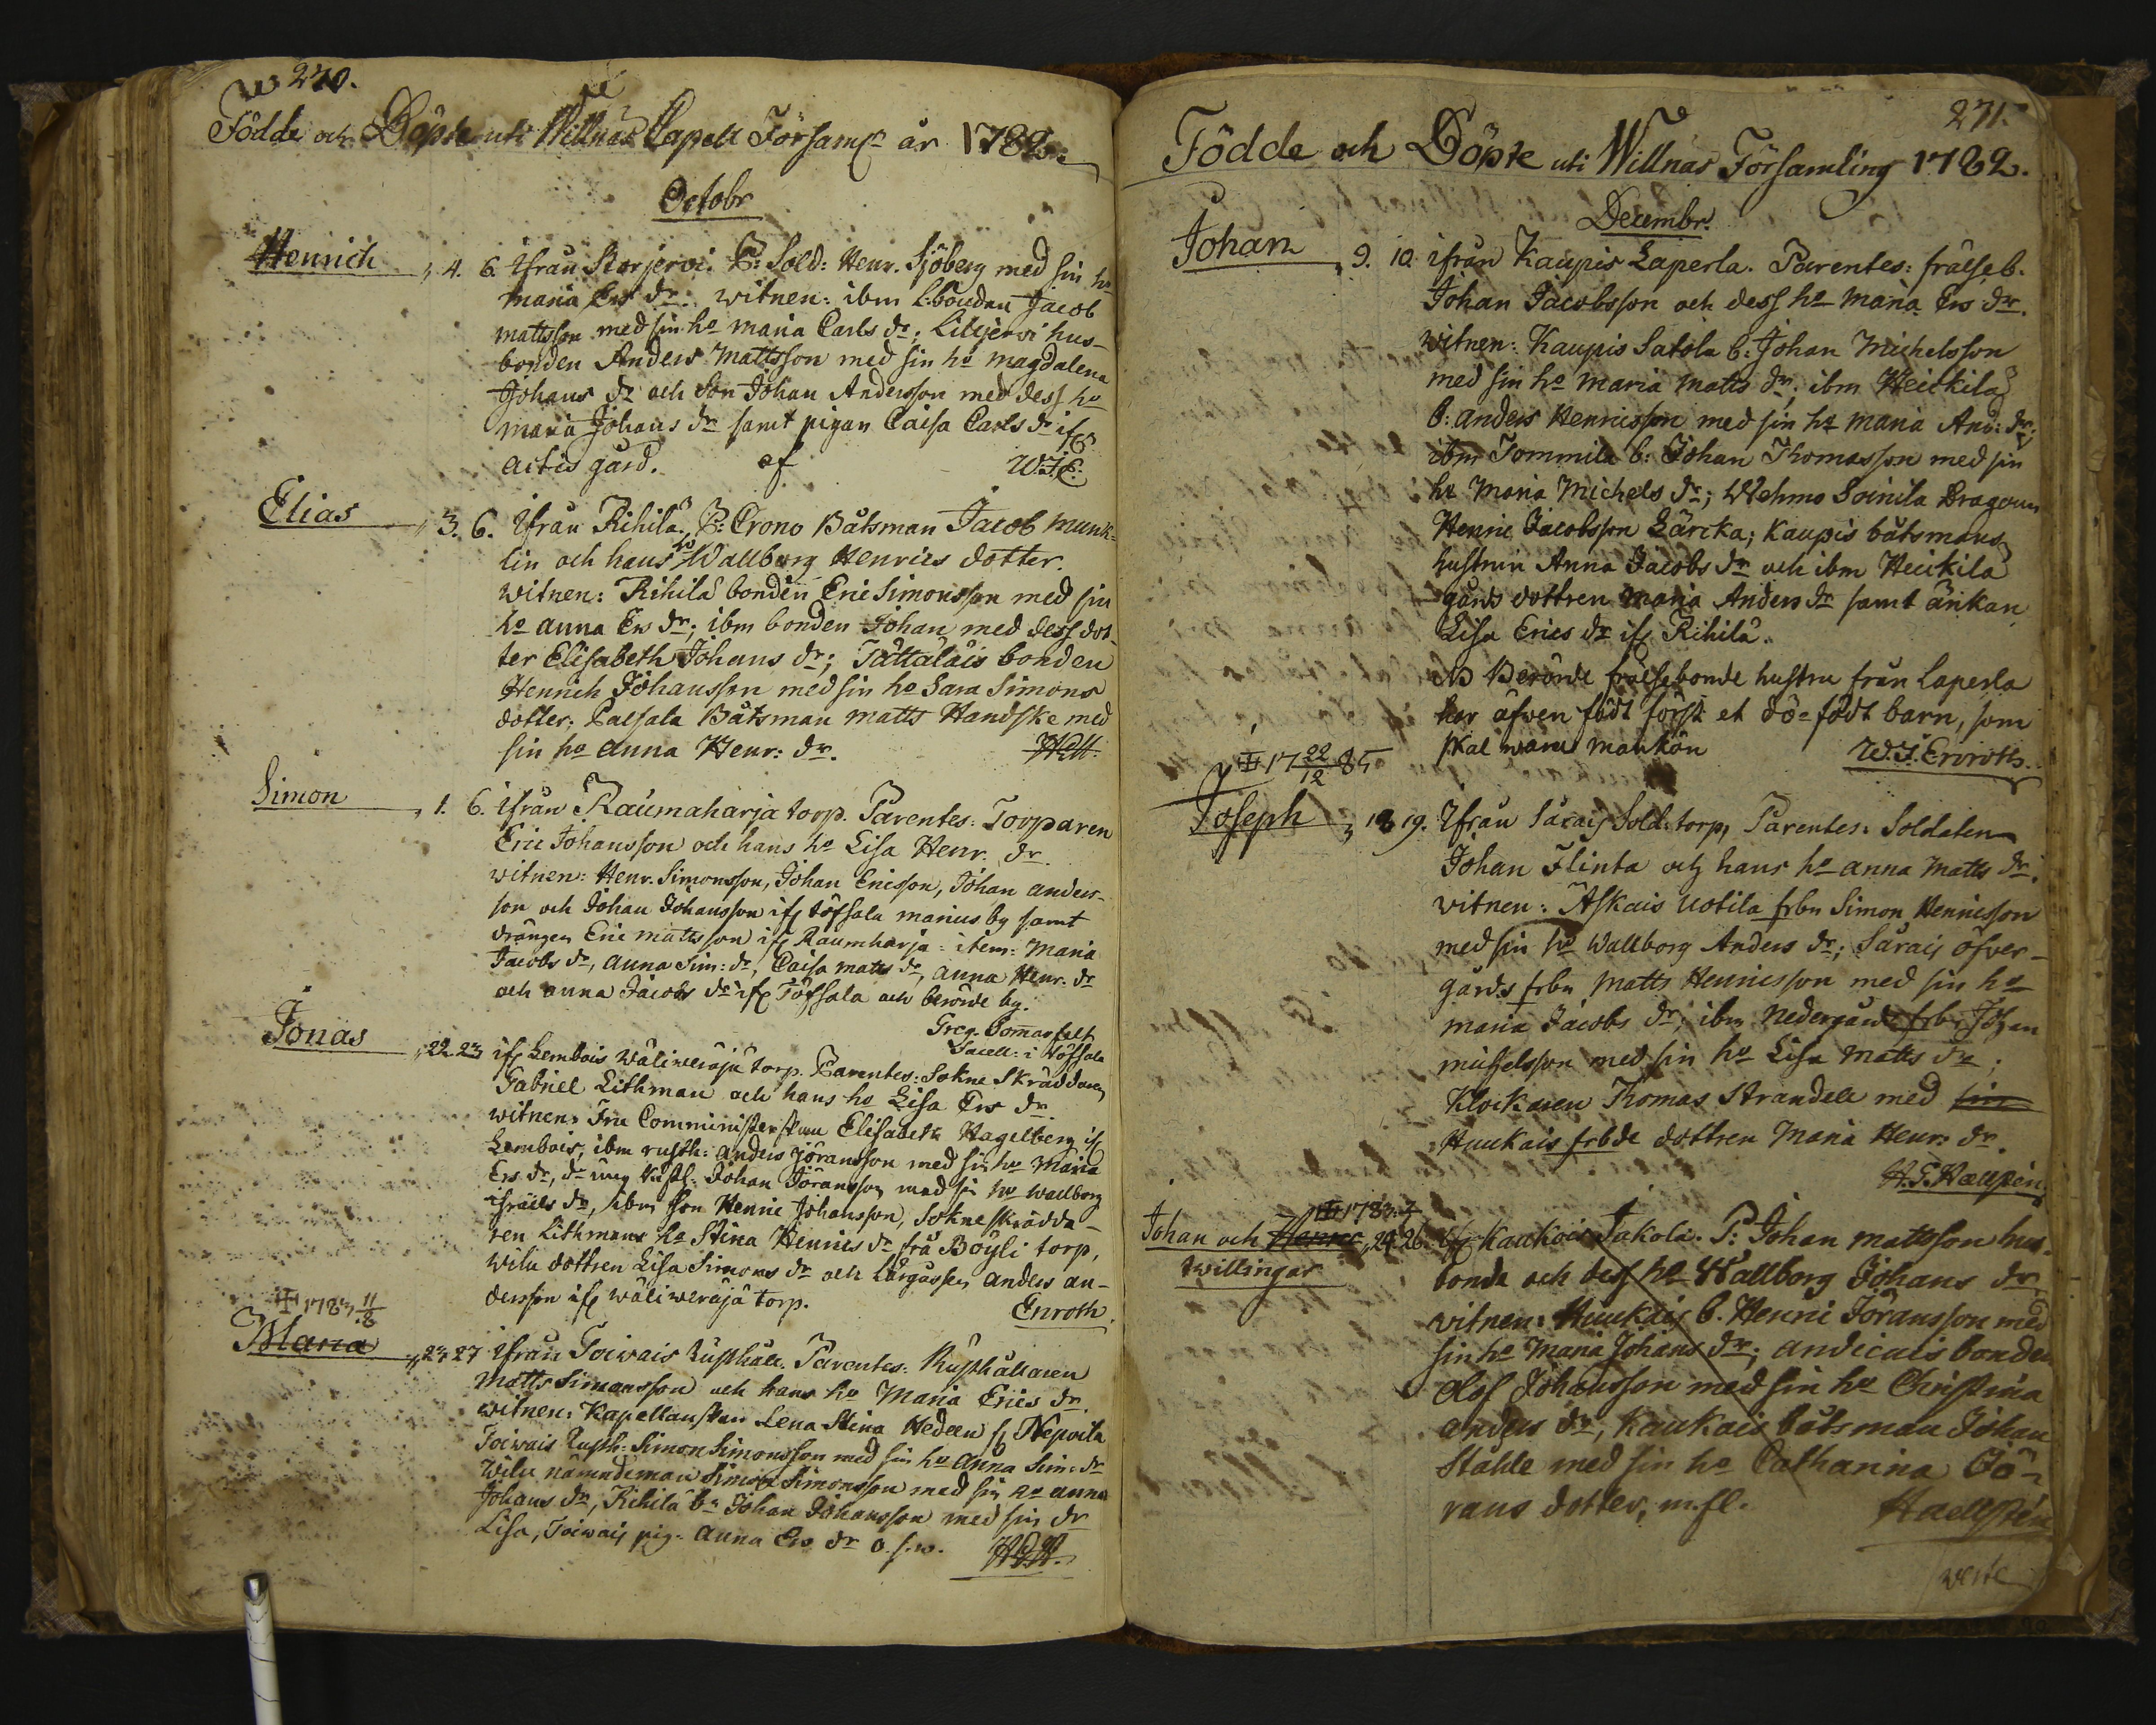 270.
Födde och Döpte uti Willnäs Capell Församl: år 1782.
Octobr
Henrich „ 4. 6. Ifrån Korjervi. P: Sold: Henr. Sjöberg med sin ho
maria Ers dr. witnen: ibm L:bonden Jacob
mattsson med sin ho maria Carls dr; Lilljervi hus-
bonden Anders Mattsson med sin ho magdalena
Johans dr och Son Johan Andersson med dess ho
maria Johans dr samt pigan Caisa Carls dr if
Actis gård. af W.J.E.
Elias „ 3. 6. Ifrån Rihilä, P: Crono Båtsman Jacob Munk-
lin och hans ho Wallborg Henrics dotter.
witnen: Rihilä bonden Eric Simonsson med sin
ho anna Ers dr; ibm bonden Johan med dess dot-
ter Elisabeth Johans dr; Tättäläis bonden
Henrich Johansson med sin ho Sara Simons
dotter. Palsala Båtsman matts Handske med
sin ho anna Henr: dr.
Simon „ 1. 6. ifrån Raumaharja torp. Parentes: Torparen
Eric Johansson och hans ho Lisa Henr. dr.
witnen: Henr. Simonsson, Johan Ericsson, Johan anders-
son och Johan Johansson if töfsala marius by samt
drängen Eric mattsson if Raumharja: item: Maria
Jacobs dr, anna Sim: dr, Caisa matts dr, anna Henr. dr
och anna Jacobs dr if Töfsala och berörde by.
Greg. Pomafelt
Sacell: i Töfsala
Jonas „ 22 23 if Lembois wäliweräjä torp. Parentes: Sokne Skräddaren
Gabriel Lithman och hans ho Lisa Ers dr.
witnen: Fru Comministerskan Elisabeth Hagelberg if
Lembois, ibm rusth: anders Jöransson med sin ho Maria
Ers dr, dr ung rusth: Johan Jöransson med sin ho wallborg
israels dr, ibm son Henric Johansson, Sokne skrädda-
ren Lithmans ho Stina Henrics dr frå Böyli torp,
wilu dottren Lisa Simons dr och Lärgåssen anders an-
dersson if wäliweräjä torp. Enroth.
1783 11/8
Maria „ 23 27 ifrån Toiwais Rusthåll. Parentes: Rusthållaren
Matts Simonsson och hans ho Maria Erics dr.
witnen: Kapellanskan Lena Stina Hedeen if Nepoila
Toiwais Rusth: Simon Simonsson med sin ho Anna Sim: dr
Wilu nämndeman Simon Simonsson med sin ho anna
Johans dr, Rihilä bn Johan Johansson med sin dr
Lisa, Toiwais pig: anna Ers dr o.s.w.
271.
Födde och Döpte uti Willnäs Församling 1782.
Decembr.
Johan „ 9. 10. ifrån Kaupis Laperla. Parentes: frälse b.
Johan Jacobsson och dess ho maria Ers dr.
witnen: Kaupis Satola b: Johan Michelsson
med sin ho maria matts dr; ibm Heickilä
b: anders Henricsson med sin ho maria And: dr;
ibm Tommila b: Johan Thomasson med sin
ho Maria Michels dr; Wehmo Soinila Dragoun
Henric Jacobsson Lärcka; Kaupis båtsmans
hustrun Anna Jacobs dr och ibm Heickilä
gårds dottren maria Anders dr samt änkan
Lisa Erics dr if Rihilä.
NB Berörde frälsebonde hustru från Laperla
har äfven födt först et dö-födt barn, som
skal wara mankön W.J. Enroth.
17 22/12 85
Joseph „ 18 19. Ifrån Särais Sold: torp, Parentes: Soldaten
Johan Flinta och hans ho anna matts dr.
witnen: Askais uotila frbn Simon Henricsson
med sin ho Wallborg Anders dr; Särais öfver-
gårds frbn Matts Henricsson med sin ho
maria Jacobs dr; ibm Nedergårds frbn Johan
michelsson med sin ho Lisa matts dr;
Klockaren Thomas Strandell med sin
Huukais frbde dottren Maria Henr: dr.
1783. 7
Johan och Henric „ 24. 26. if Kaukois Jakola. P: Johan mattsson hus-
twillingar bonde och dess ho Wallborg Johans dr
witnen: Huukais b. Henric Jöransson med
sin ho Maria Johans dr; andicais bonden
Olof Johansson med sin ho Christina
anders dr, Kaukais båtsman Johan
Ståhle med sin ho Catharina Jö-
rans dotter, m.fl. Haellstén
verte